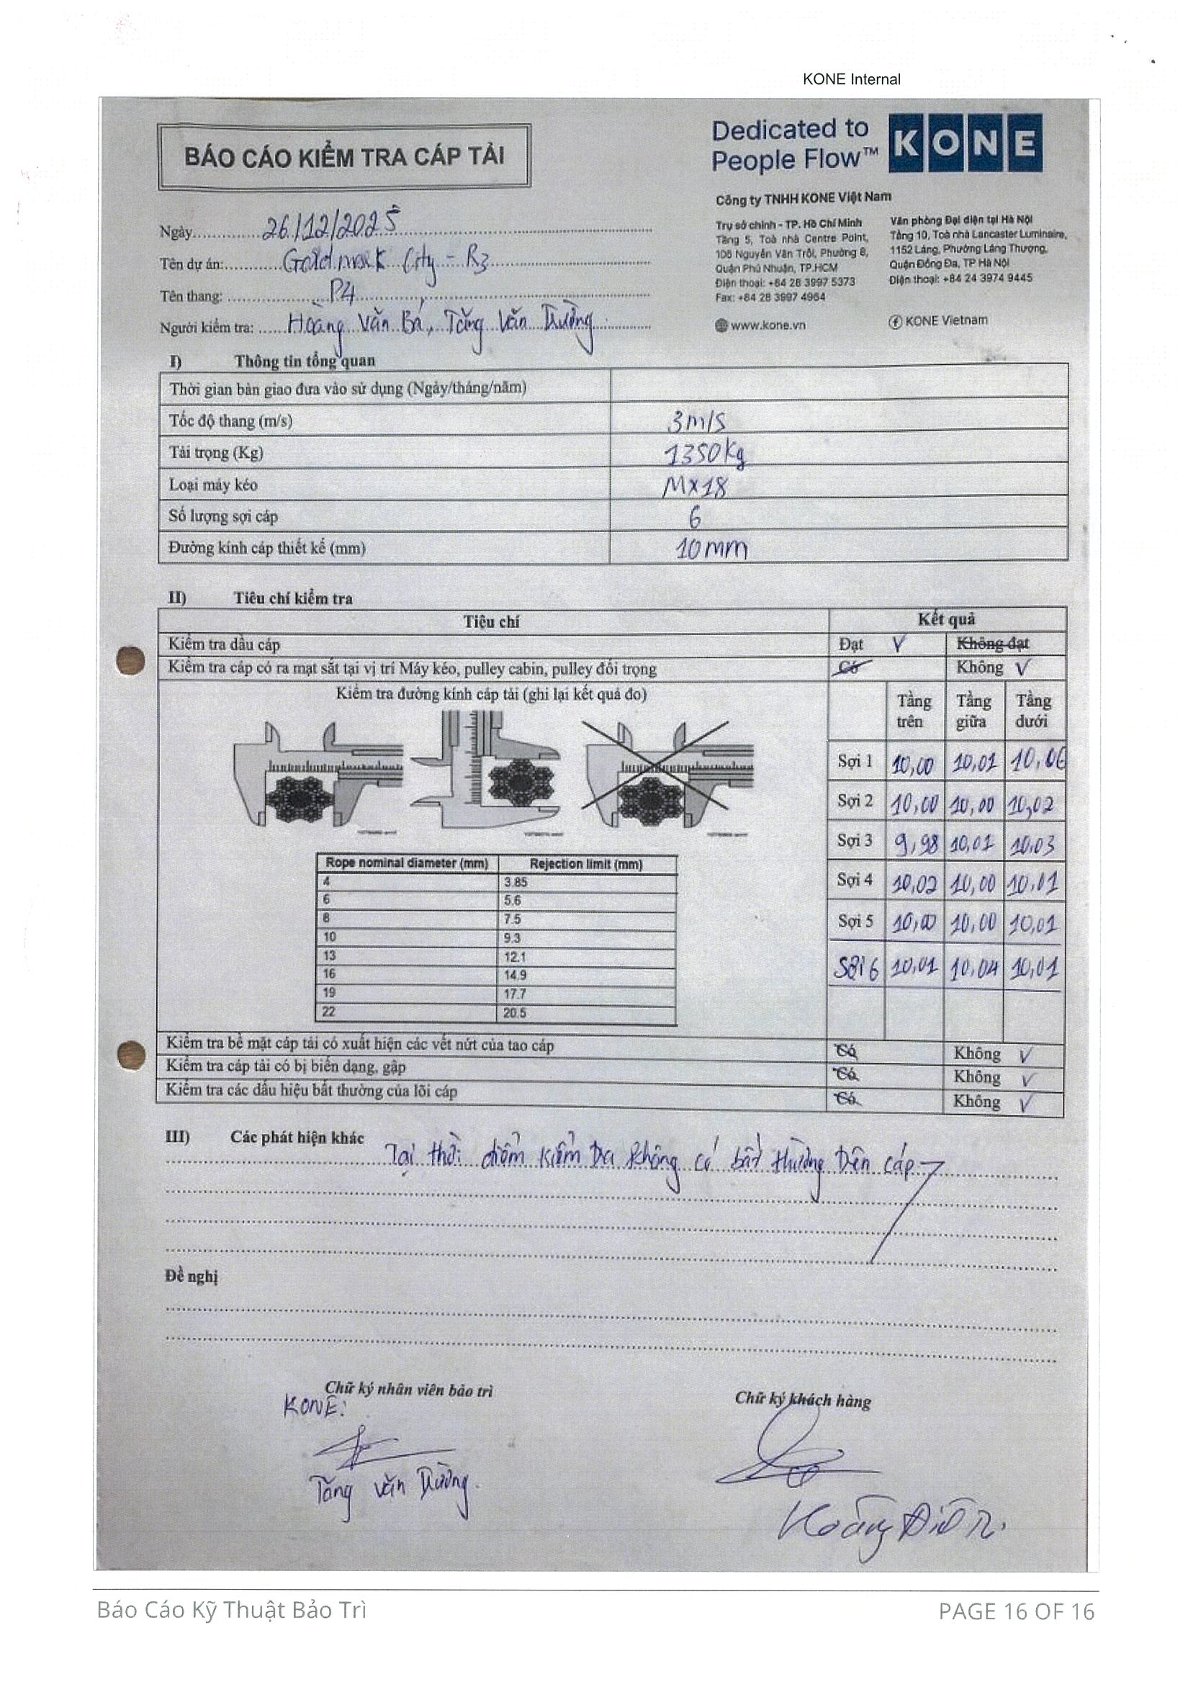 KONE Internal
BÁO CÁO KIỂM TRA CÁP TẢI
Dedicated to
People Flow™
KONE
Công ty TNHH KONE Việt Nam
Trụ sở chính - TP. Hồ Chí Minh
Tầng 5, Toà nhà Centre Point,
106 Nguyễn Văn Trỗi, Phường 8,
Quận Phú Nhuận, TP.HCM
Điện thoại: +84 28 3997 5373
Fax: +84 28 3997 4964
www.kone.vn
Văn phòng Đại diện tại Hà Nội
Tầng 10, Toà nhà Lancaster Luminaire,
1152 Láng, Phường Láng Thượng,
Quận Đống Đa, TP Hà Nội
Điện thoại: +84 24 3974 9445
KONE Vietnam
Ngày 26/12/2025
Tên dự án: Goldmark City - R3
Tên thang: P4
Người kiểm tra: Hoàng Văn Bá, Tăng Văn Trường
I) Thông tin tổng quan
Thời gian bàn giao đưa vào sử dụng (Ngày/tháng/năm)
Tốc độ thang (m/s) 3m/s
Tải trọng (Kg) 1350kg
Loại máy kéo MX18
Số lượng sợi cáp 6
Đường kính cáp thiết kế (mm) 10mm
II) Tiêu chí kiểm tra
Tiêu chí Kết quả
Kiểm tra dầu cáp Đạt V Không đạt
Kiểm tra cáp có ra mạt sắt tại vị trí Máy kéo, pulley cabin, pulley đối trọng Có Không V
Kiểm tra đường kính cáp tải (ghi lại kết quả đo)
Tầng trên Tầng giữa Tầng dưới
Sợi 1 10,00 10,01 10,06
Sợi 2 10,00 10,00 10,02
Sợi 3 9,98 10,01 10,03
Sợi 4 10,02 10,00 10,01
Sợi 5 10,00 10,00 10,01
Sợi 6 10,01 10,04 10,01
Rope nominal diameter (mm) Rejection limit (mm)
4 3.85
6 5.6
8 7.5
10 9.3
13 12.1
16 14.9
19 17.7
22 20.5
Kiểm tra bề mặt cáp tải có xuất hiện các vết nứt của tao cáp Có Không V
Kiểm tra cáp tải có bị biến dạng, gập Có Không V
Kiểm tra các dấu hiệu bất thường của lõi cáp Có Không V
III) Các phát hiện khác
Tại thời điểm kiểm tra không có bất thường trên cáp
Đề nghị
Chữ ký nhân viên bảo trì
KONE:
Tăng Văn Trường
Chữ ký khách hàng
Báo Cáo Kỹ Thuật Bảo Trì
PAGE 16 OF 16